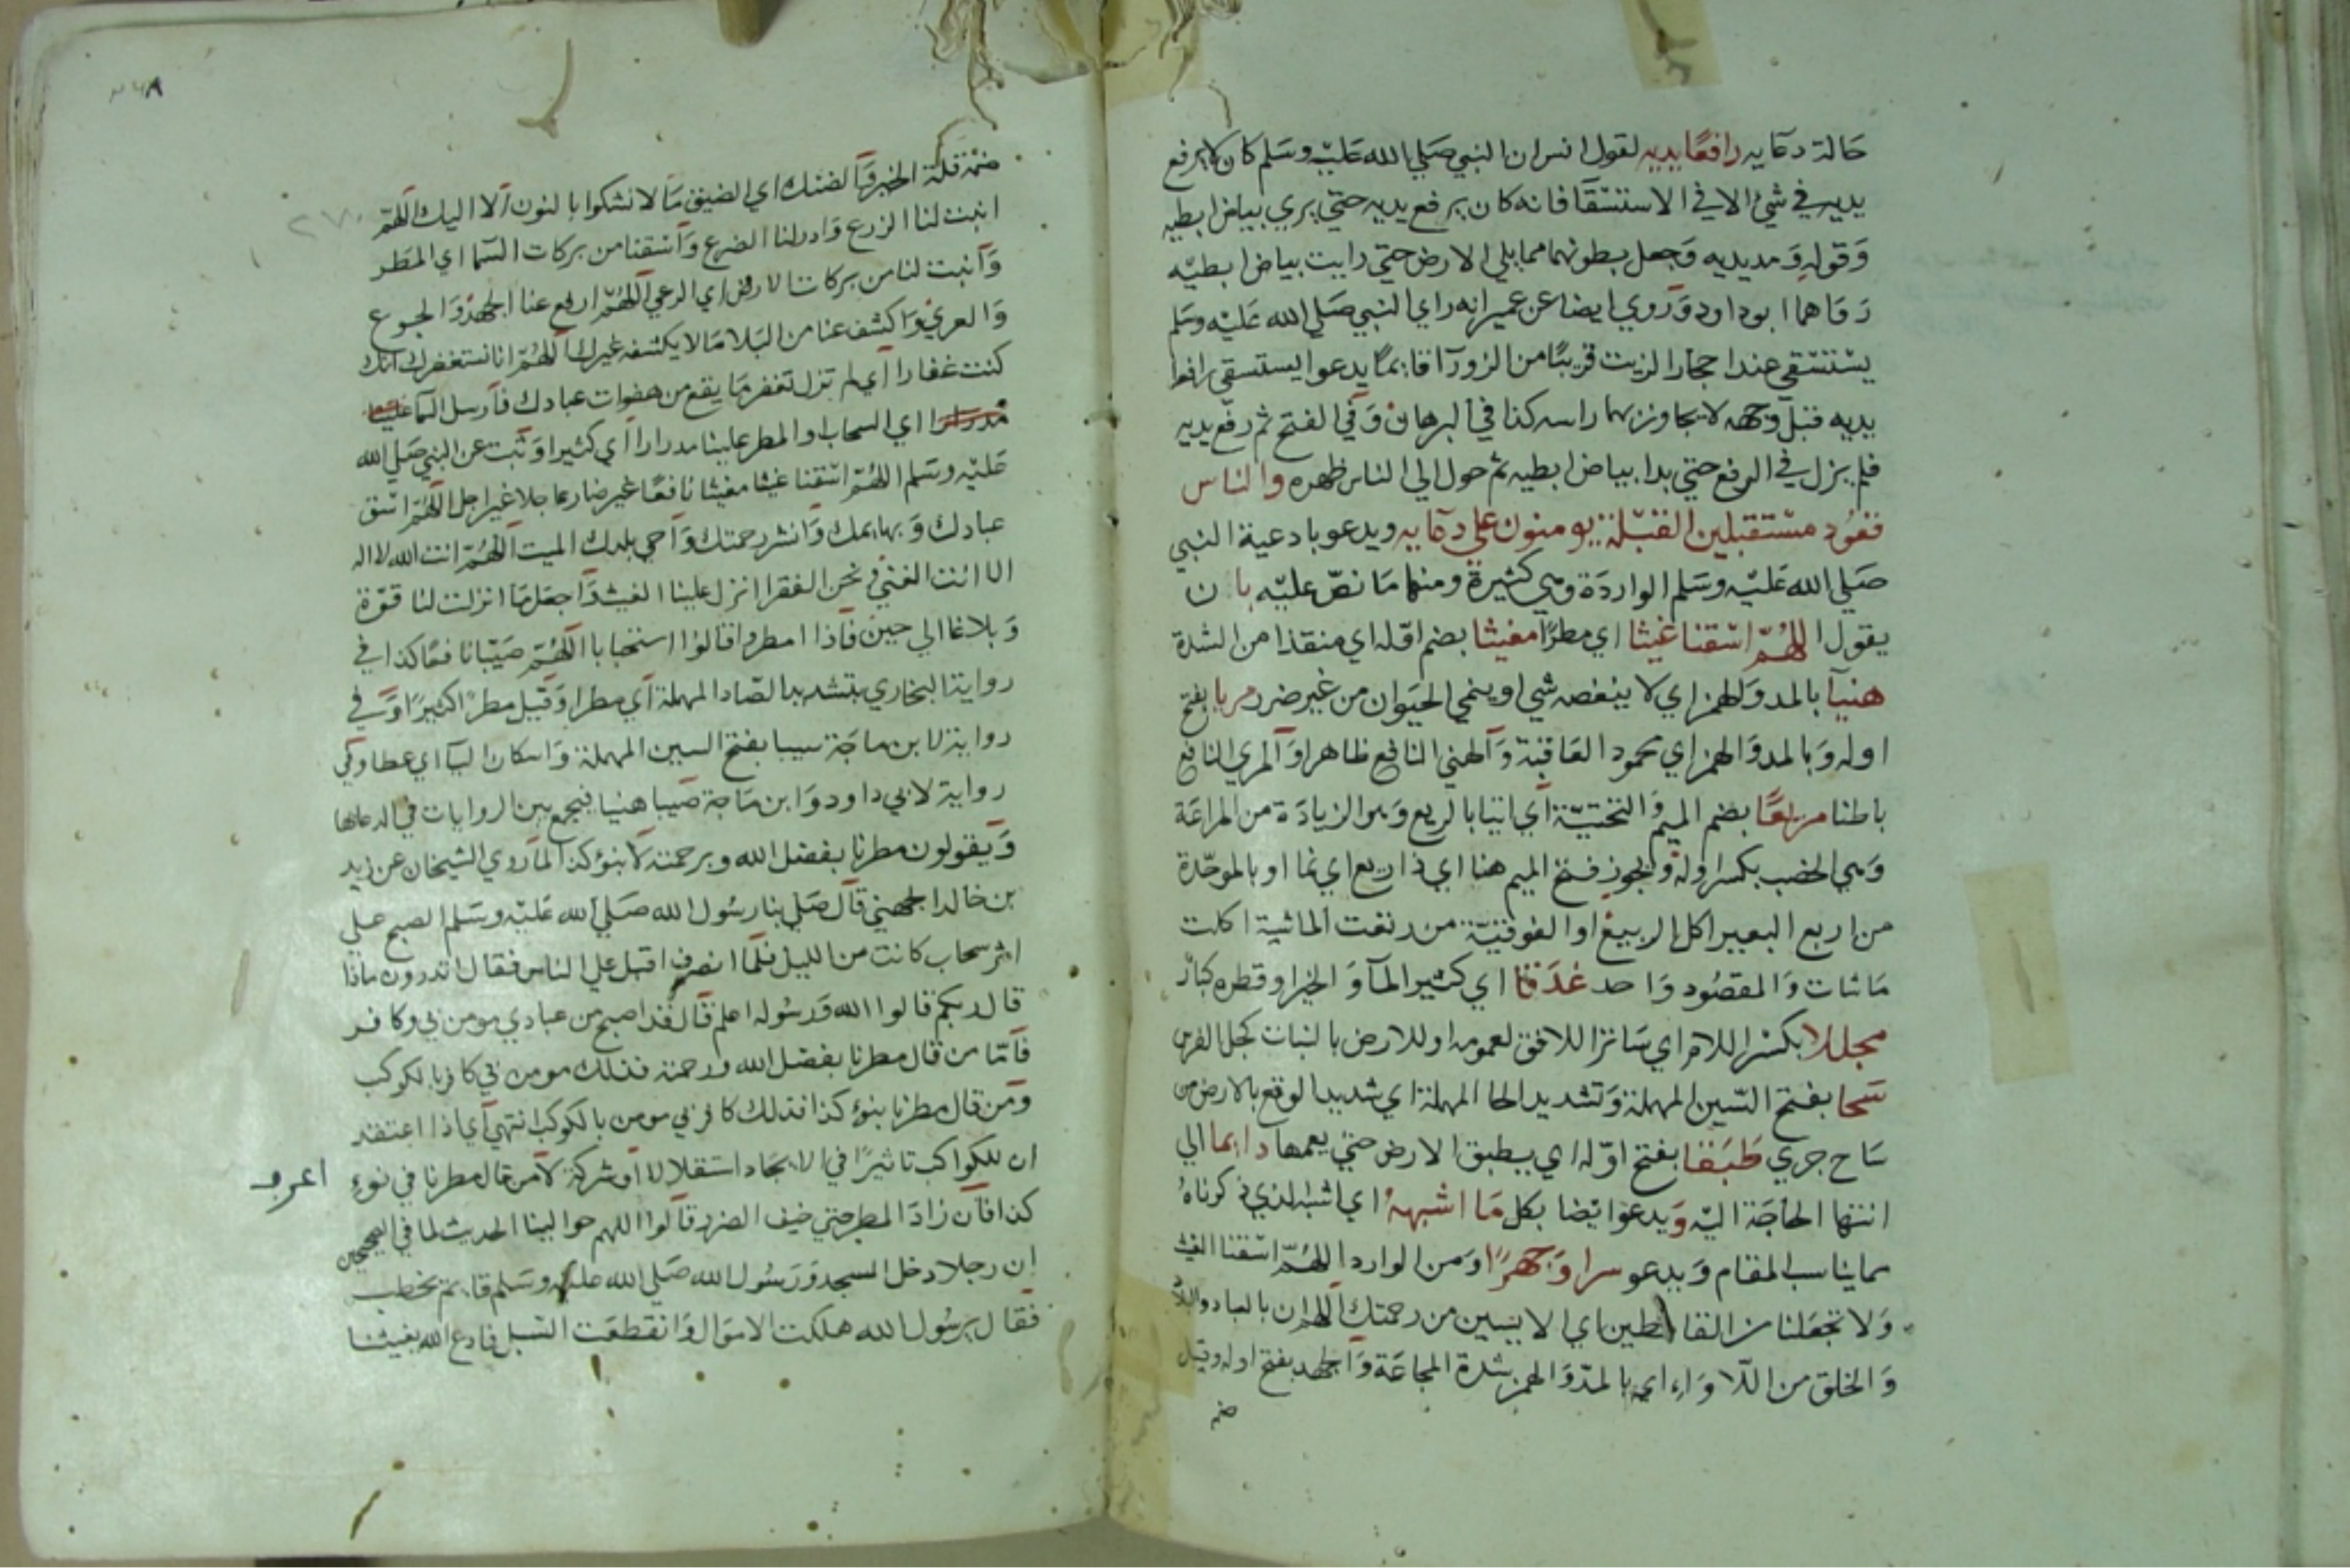 حالة دعايه رافعا يديه لقول انس ان النبي صلي الله عليه وسلم كان لا يرفع
يديه في شئ الا في الاستسقا فانه كان يرفع يديه حتي يري بياض ابطيه
وقوله ومد يديه وجعل بطونهما مما يلي الارض حتي رايت بياض ابطيه
رواهما ابو داود وروي ايضا عن عمير انه راي النبي صلي الله عليه وسلم
يستسقي عند احجار الزيت قريبا من الزورا قايما يدعوا يستسقي رافعا
يديه قبل وجهه لا يجاوز بهما راسه كذا في البرهان وفي الفتح ثم رفع يديه
فلم يزل في الرفع حتي بدا بياض ابطيه ثم حول الي الناس ظهره والناس
قعود مستقبلين القبلة يومنون علي دعايه ويدعو بادعية النبي
صلي الله عليه وسلم الواردة وهي كثيرة ومنها ما نص عليه بان
يقول اللهم اسقنا غيثا اي مطرا مغيثا بضم اوله اي منقذا من الشدة
هنيا بالمد والهمز اي لا ينغصه شي او ينمي الحيوان من غير ضرر مريا بفتح
اوله وبالمد والهمز اي محمود العاقبة والهني النافع ظاهرا والمري النافع
باطنا مريعا بضم الميم والتحتية اي اتيا بالريع وهو الزيادة من المراعة
وهي الخصب بكسر اوله ويجوز فتح الميم هنا اي ذا ريع اي نما او بالموحدة
من اربع البعير اكل الربيع او الفوقية من رتعت الماشية اكلت
ما شات والمقصود واحد غدقا اي كثير الما والخير او قطره كبار
مجللا بكسر اللام اي ساترا للافق لعمومه او للارض بالنبات كجل الفرس
سحا بفتح السين المهملة وتشديد الحا المهملة اي شديد الوقع بالارض من
ساح جري طبقا بفتح اوله اي يطبق الارض حتي يعمها دايما الي
انتها الحاجة اليه ويدعو ايضا بكل ما اشبهه اي اشبه الذي ذكرناه
مما يناسب المقام ويدعو سرا وجهرا ومن الوارد اللهم اسقنا الغيث
ولا تجعلنا من القانطين اي الايسين من رحمتك اللهم ان بالعباد والبلاد
والخلق من اللاواء اي بالمد والهمز شدة المجاعة والجهد بفتح اوله وقيل
ضم
ضمه قلة الخير والضنك اي الضيق ما لا نشكوا بالنون الا اليك اللهم
انبت لنا الزرع وادر لنا الضرع واسقنا من بركات السما اي المطر
وانبت لنا من بركات الارض اي الرعي اللهم ارفع عنا الجهد والجوع
والعري واكشف عنا من البلا ما لا يكشفه غيرك اللهم انا نستغفرك انك
كنت غفارا اي لم تزل تغفر ما يقع من هفوات عبادك فارسل السما علينا
مدرارا اي السحاب او المطر علينا مدرارا اي كثيرا وثبت عن النبي صلي الله
عليه وسلم اللهم اسقنا غيثا مغيثا نافعا غير ضار عاجلا غير اجل اللهم اسق
عبادك وبهايمك وانشر رحمتك واحي بلدك الميت اللهم انت الله لا اله
الا انت الغني ونحن الفقرا انزل علينا الغيث واجعل ما انزلت لنا قوة
وبلاغا الي حين فاذا امطروا قالوا استحبابا اللهم صيبا نافعا كذا في
رواية البخاري بتشديد الصاد المهملة اي مطرا وقيل مطرا كثيرا وفي
رواية لابن ماجة سيبا بفتح السين المهملة واسكان اليا اي عطا وفي
رواية لابي داود وابن ماجة صيبا هنيا فيجمع بين الروايات في الدعا بها
ويقولون مطرنا بفضل الله وبرحمته لا بنوء كذا لما روي الشيخان عن زيد
بن خالد الجهني قال صلي بنا رسول الله صلي الله عليه وسلم الصبح علي
اثر سحاب كانت من الليل فلما انصرف اقبل علي الناس فقال اتدرون ماذا
قال ربكم قالوا الله ورسوله اعلم قال قد اصبح من عبادي مومن بي وكافر
فاما من قال مطرنا بفضل الله ورحمته فذلك مومن بي كافر بالكوكب
ومن قال مطرنا بنوء كذا فذلك كافر بي مومن بالكوكب انتهي اي اذا اعتقد
ان للكواكب تاثيرا في الايجاد استقلالا او شركة لا من قال مطرنا في نوء
كذا فان زاد المطر حتي خيف الضرر قالوا اللهم حوالينا الحديث لما في الصحيحين
ان رجلا دخل المسجد ورسول الله صلي الله عليه وسلم قايم يخطب
فقال يرسول الله هلكت الاموال وانقطعت السبل فادع الله يغيثنا